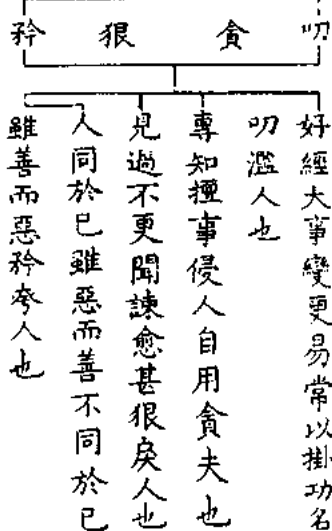 叨
貪
狠
矜
好經大事變更易常以掛功名
叨濫人也
專知擅事侵人自用貪夫也
見過不更聞諫愈甚狠戾人也
人同於已雖惡而善不同於已
雖善而惡矜夸人也